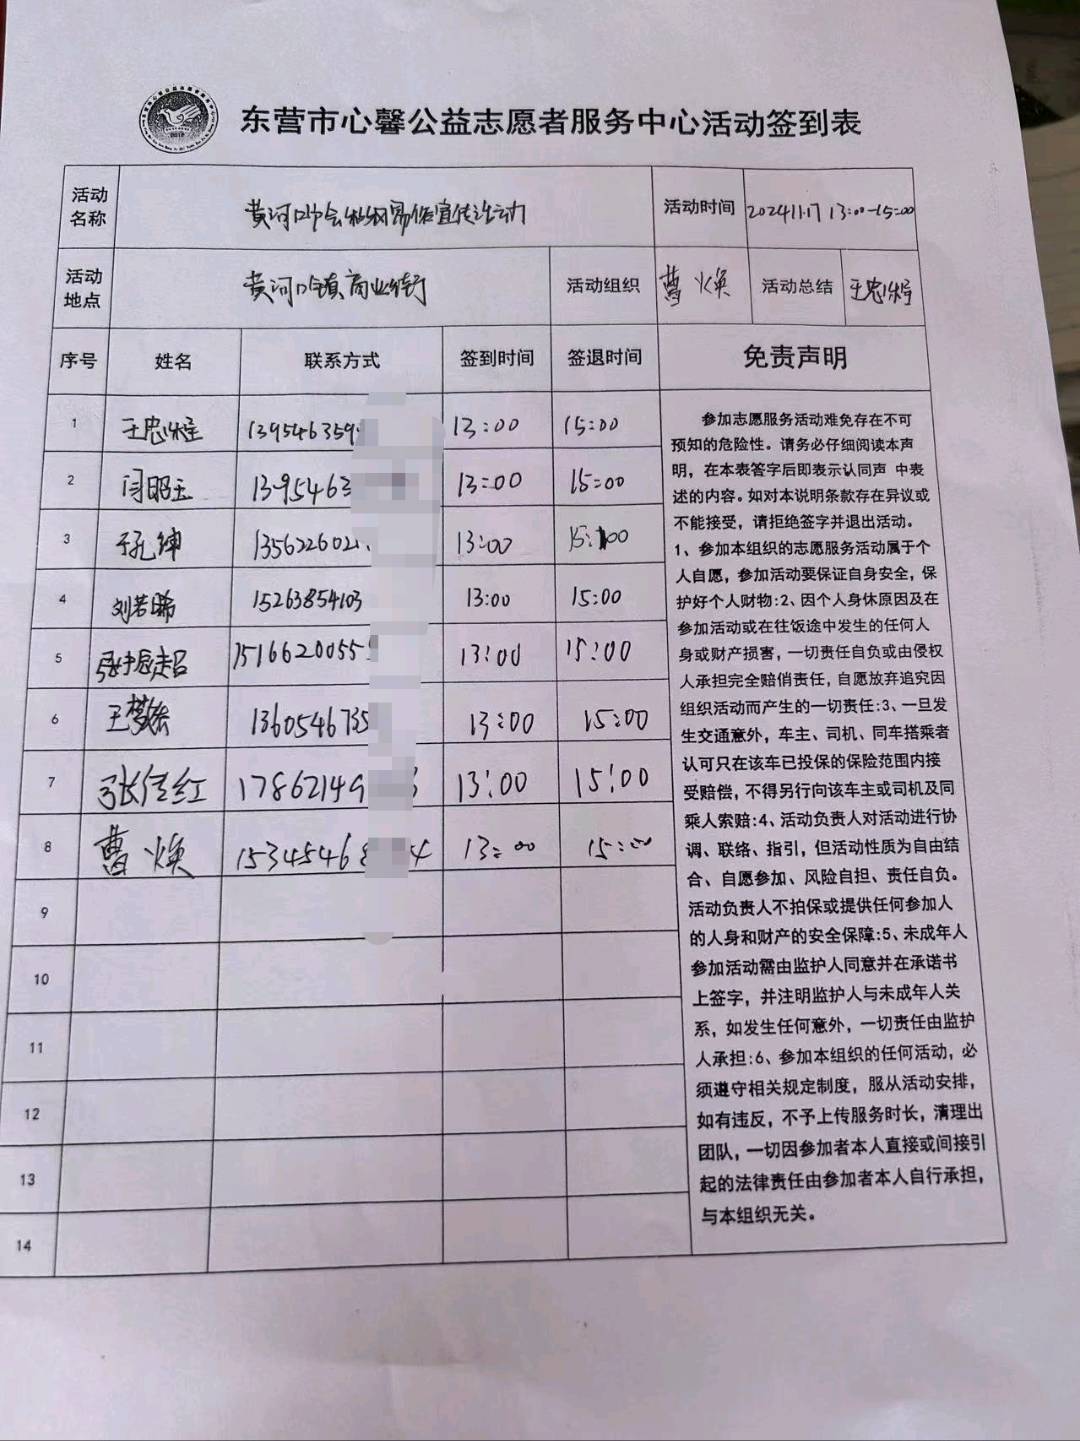 东营市心馨公益志愿者服务中心活动签到表
活动名称
活动时间 2024.11.17 13:00-15:00
活动地点 黄河口镇商业街 活动组织 曹焕 活动总结
序号 姓名 联系方式 签到时间 签退时间 免责声明
1 13954635 13:00 15:00
2 1395463 13:00 15:00
3 1356226 13:00 15:00
4 刘若晞 15263854103 13:00 15:00
5 1516620055 13:00 15:00
6 1360546735 13:00 15:00
7 17862149 13:00 15:00
8 曹焕 15345468 4 13:00 15:00
9
10
11
12
13
14
参加志愿服务活动难免存在不可
预知的危险性。请务必仔细阅读本声
明，在本表签字后即表示认同声 中表
述的内容。如对本说明条款存在异议或
不能接受，请拒绝签字并退出活动。
1、参加本组织的志愿服务活动属于个
人自愿，参加活动要保证自身安全，保
护好个人财物:2、因个人身休原因及在
参加活动或在往饭途中发生的任何人
身或财产损害，一切责任自负或由侵权
人承担完全赔俏责任，自愿放弃追究因
组织活动而产生的一切责任:3、一旦发
生交通意外，车主、司机、同车搭乘者
认可只在该车已投保的保险范围内接
受赔偿，不得另行向该车主或司机及同
乘人索赔:4、活动负责人对活动进行协
调、联络、指引，但活动性质为自由结
合、自愿参加、风险自担、责任自负。
活动负责人不拍保或提供任何参加人
的人身和财产的安全保障:5、未成年人
参加活动需由监护人同意并在承诺书
上签字，并注明监护人与未成年人关
系，如发生任何意外，一切责任由监护
人承担:6、参加本组织的任何活动，必
须遵守相关规定制度，服从活动安排，
如有违反，不予上传服务时长，清理出
团队，一切因参加者本人直接或间接引
起的法律责任由参加者本人自行承担，
与本组织无关。